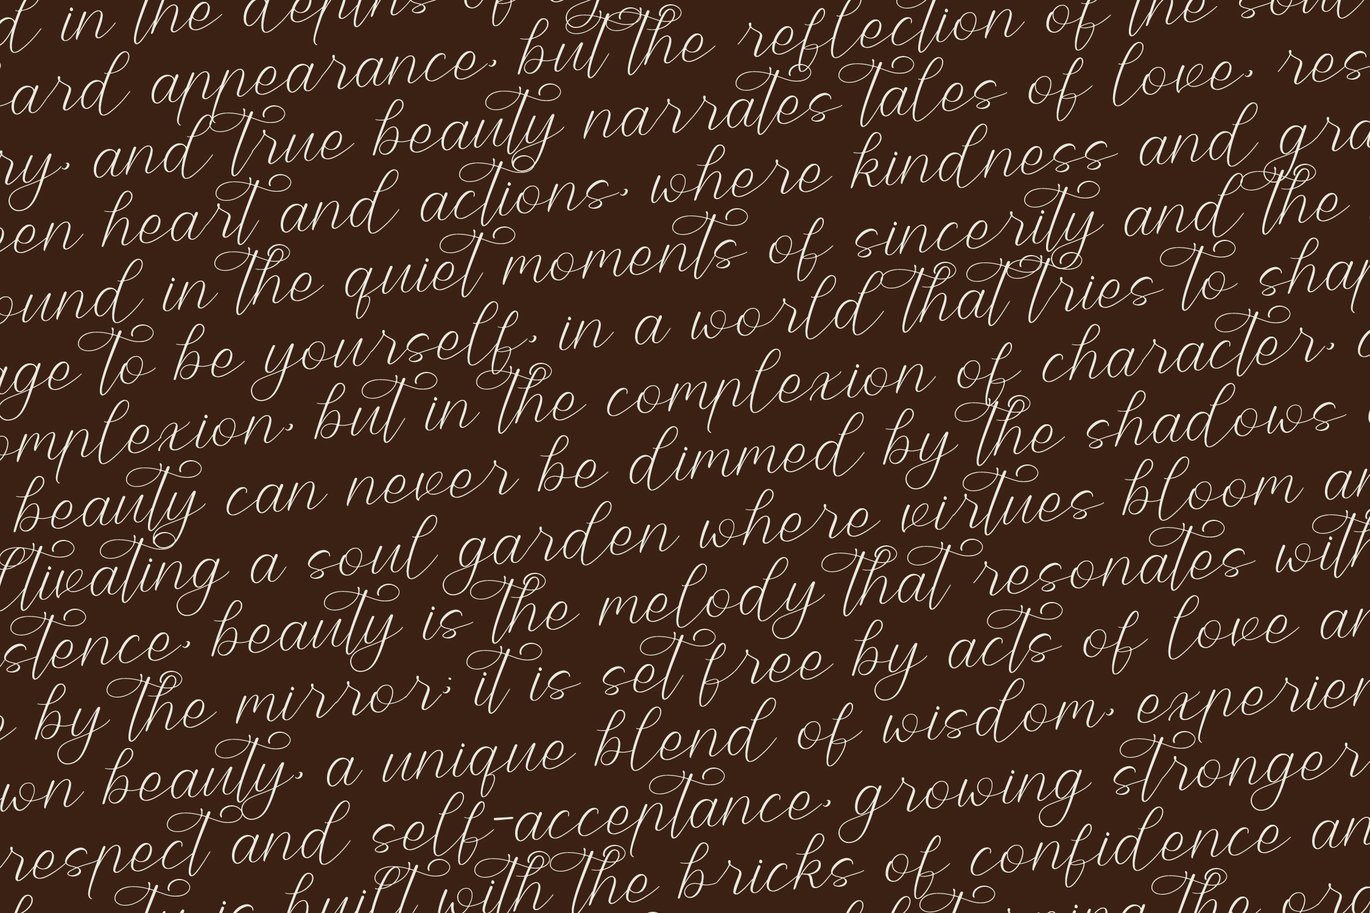 d in the depths of
ard appearance, but the reflection of the soul
ry, and true beauty narrates tales of love, res
een heart and actions, where kindness and gra
ound in the quiet moments of sincerity and the
age to be yourself, in a world that tries to shap
omplexion, but in the complexion of character,
beauty can never be dimmed by the shadows
ltivating a soul garden where virtues bloom an
stence, beauty is the melody that resonates with
by the mirror; it is set free by acts of love an
wn beauty, a unique blend of wisdom, experien
respect and self-acceptance, growing stronger
is built with the bricks of confidence an